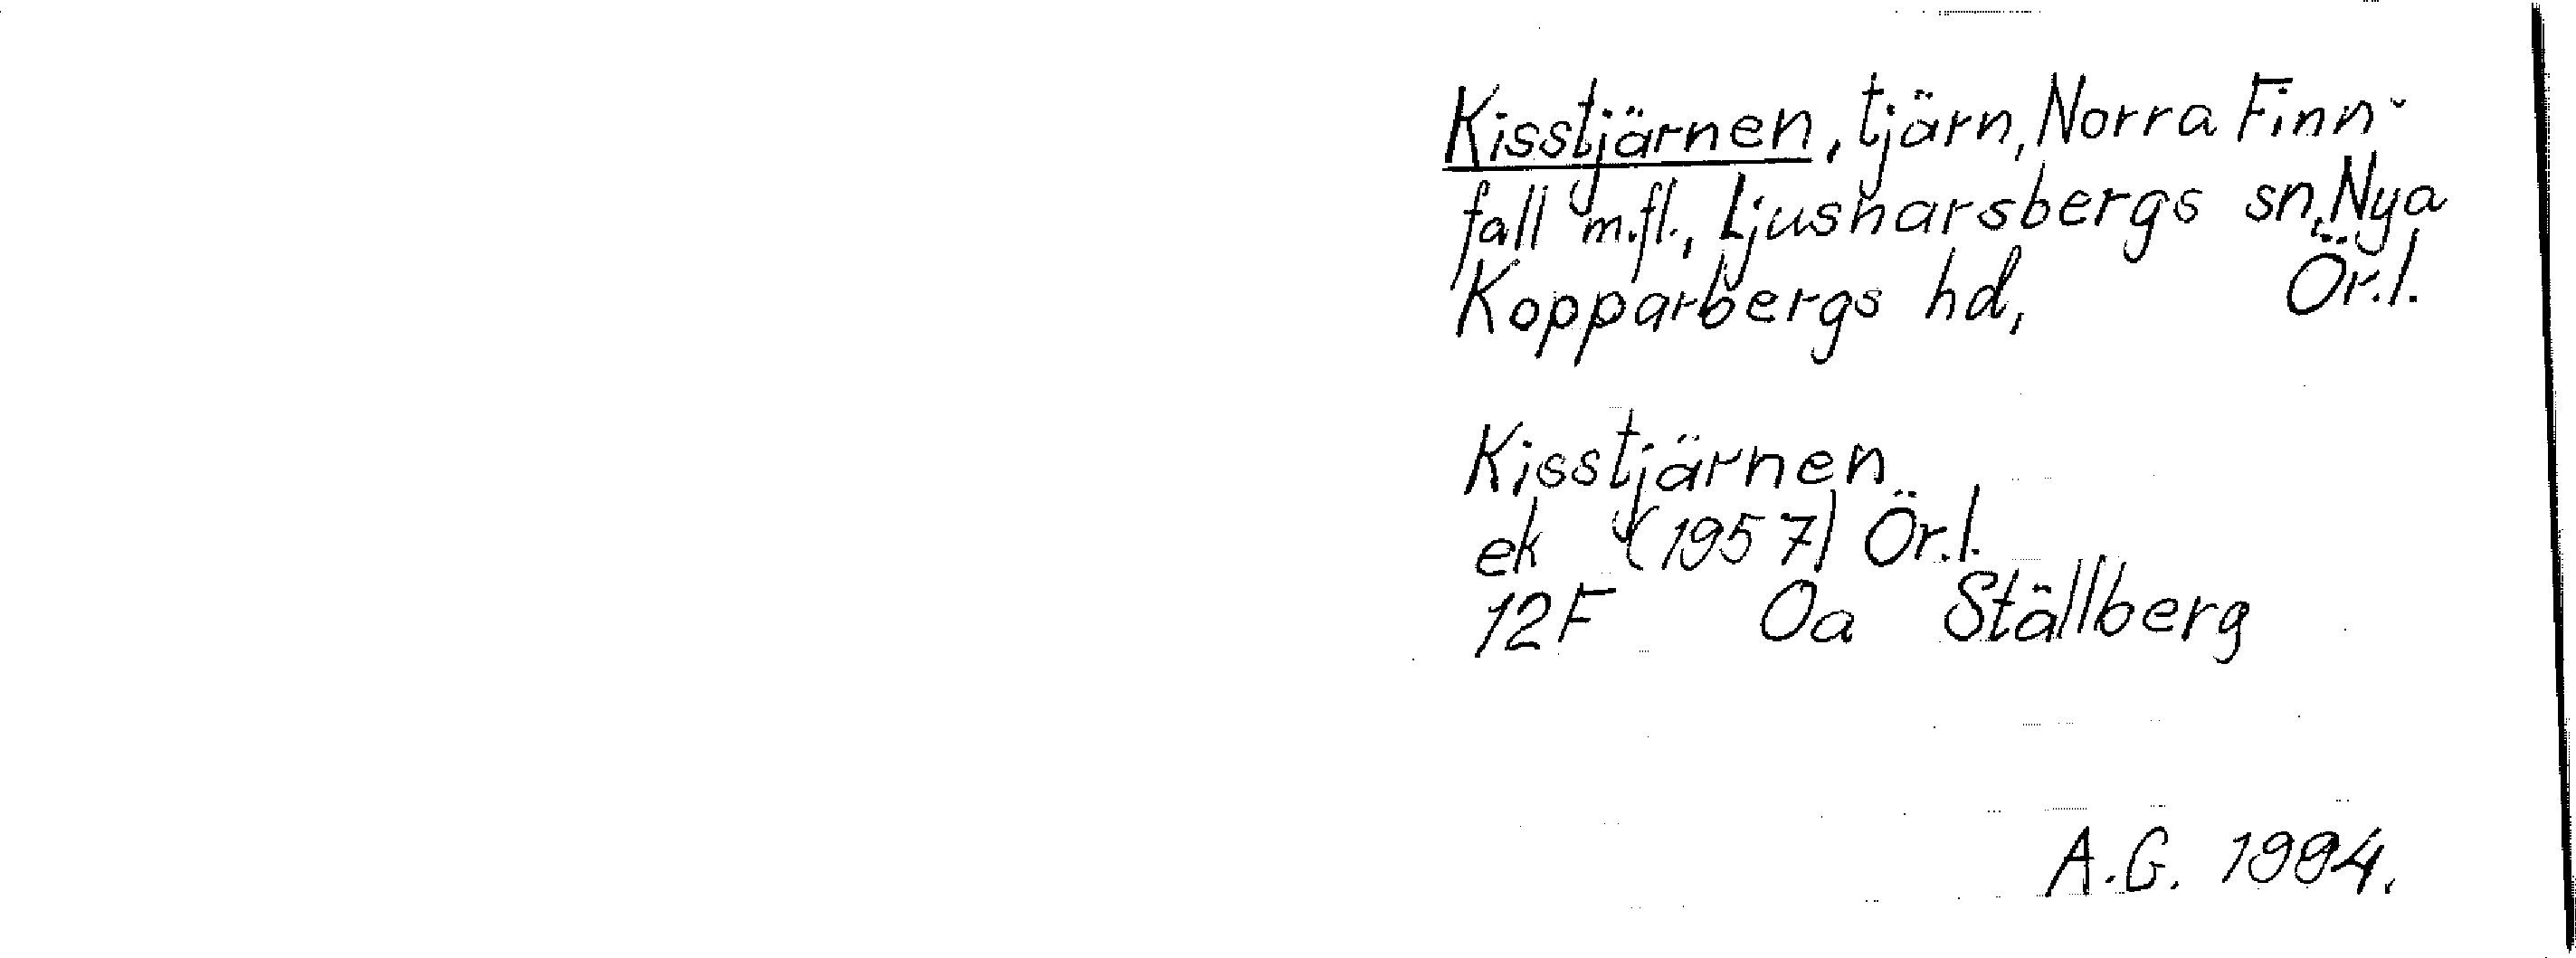 Kisstjärnen, tjärn, Norra Finn-
fall m.fl., Ljusnarsbergs sn, Nya
Kopparbergs hd, Ör.l.
Kisstjärnen
ek (1957) Ör.l.
12F 0a Ställberg
A.G. 1994.